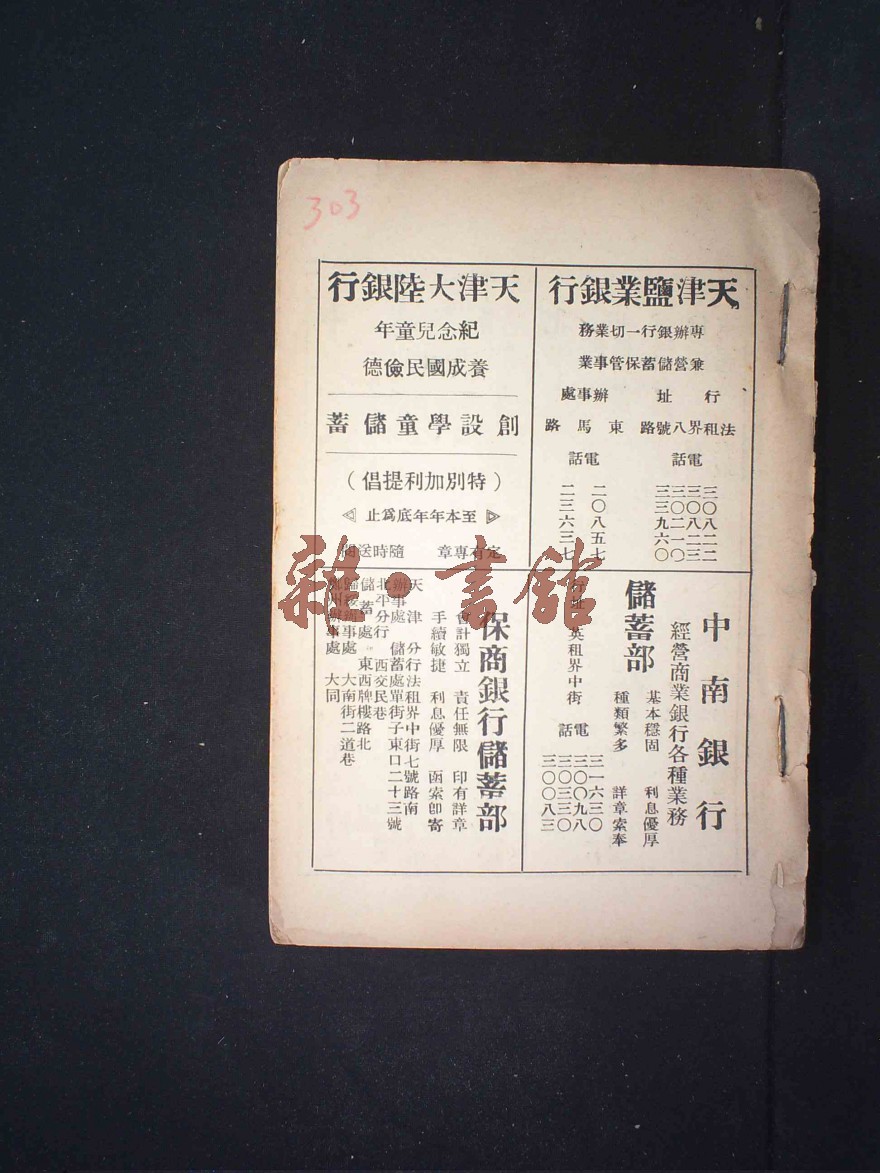 303
天津鹽業銀行
專辦銀行一切業務
兼營儲蓄保管事業
行址 辦事處
法租界八號路 東馬路
電話 電話
三〇八二二
三〇八一二
三〇二一〇
三三九六〇
二〇八五七
二三六三七
天津大陸銀行
紀念兒童年
養成國民儉德
創設學童儲蓄
(特別加利提倡)
至本年年底爲止
定有專章 隨時送
中南銀行
經營商業銀行各種業務
儲蓄部
基本穩固 利息優厚
種類繁多 詳章索奉
行址 英租界中街
電話
三一六三〇
三〇〇九八
三〇三三〇
三〇〇八三
保商銀行儲蓄部
會計獨立 責任無限 印有詳章
手續敏捷 利息優厚 函索即寄
天津分行法租界中街七號路南
辦事處 儲蓄處單街子東口二十三號
北平分行 西交民巷
儲蓄處 東西牌樓路北
歸綏辦事處 大南街二道巷
辦事處 大同